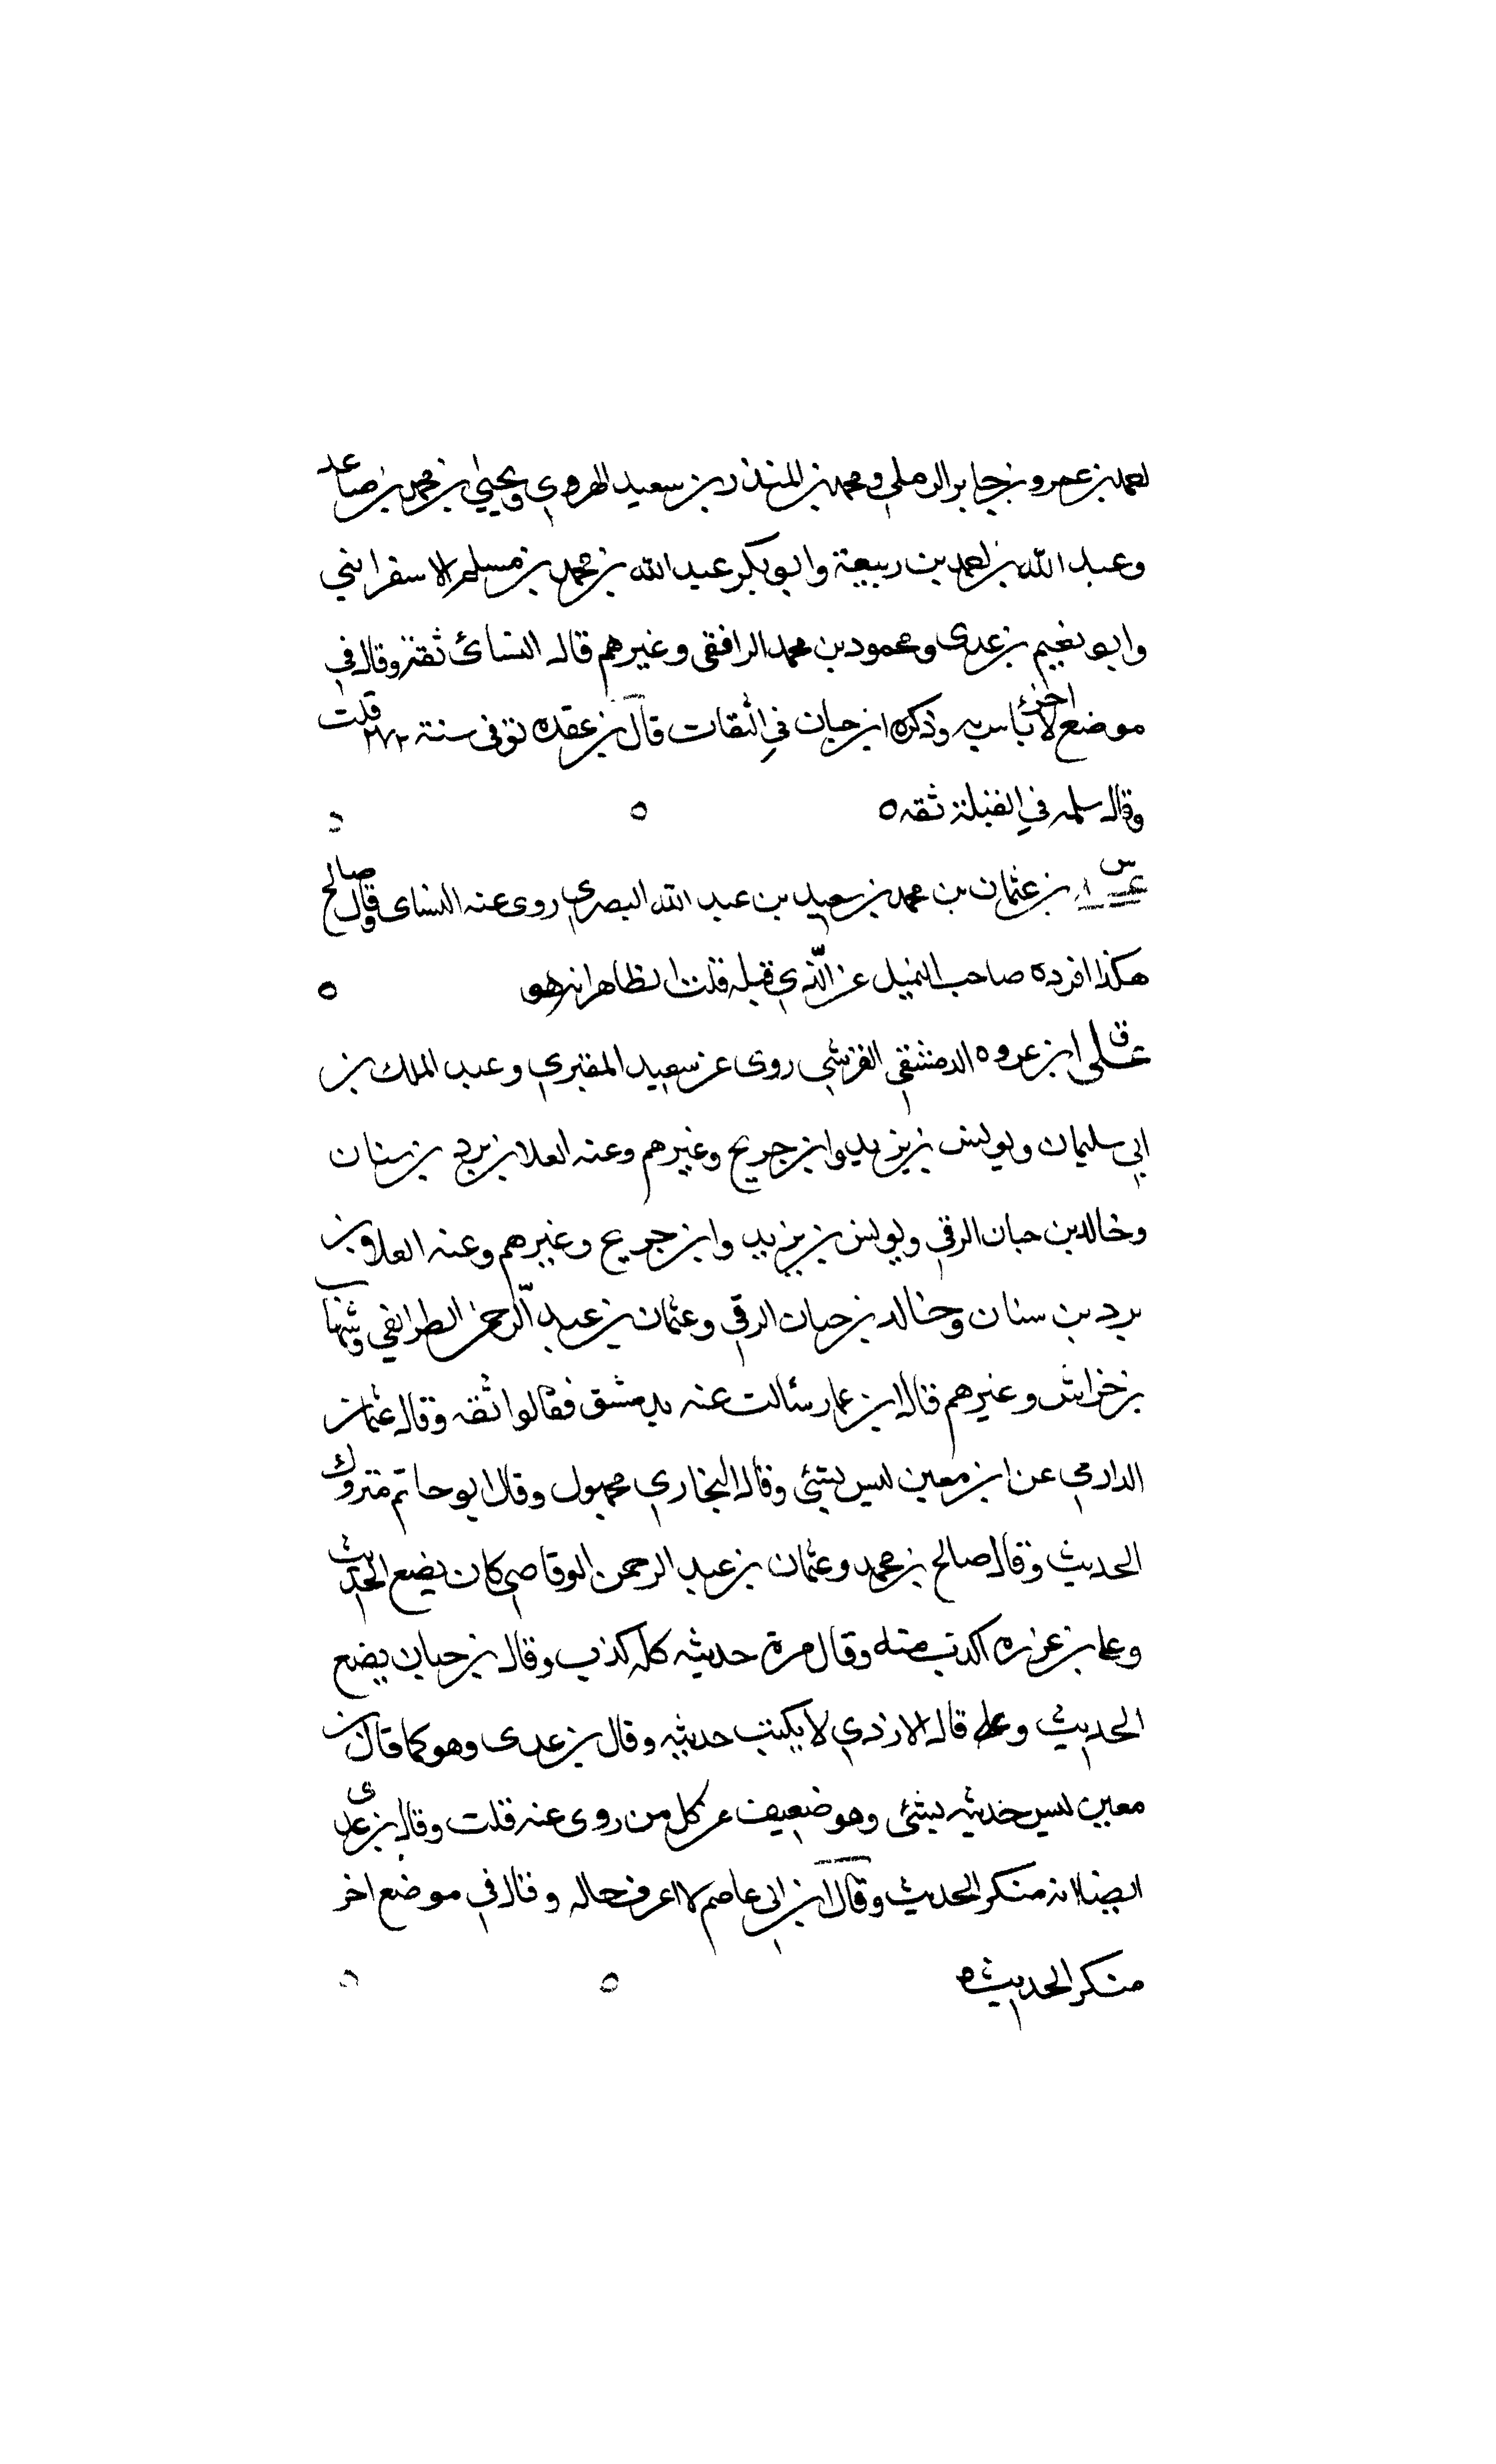 احمد بن عمرو بن جابر الرملي ومحمد بن المنذر بن سعيد الهروي ويحيى بن محمد بن صاعد
وعبد الله بن احمد بن ربيعة وابو بكر عبد الله بن محمد بن مسلم الاسفرايني
وابو نعيم بن عدى ومحمود بن محمد الرافقى وغيرهم قال النسائ ثقة وقال في
موضع اخر لا باس به وذكره ابن حبان في الثقات قال بن عقده توفى سنة ٢٧٢ قلت
وقال سلمه في الصلة ثقه ٥
س بن عثمان بن محمد بن سعيد بن عبد الله البصري روى عنه النساى وقال صالح
هكذا افرده صاحب النبل عن الذي قبله قلت الظاهر انه هو
ق ابن عروه الدمشقي القرشي روى عن سعيد المقبري وعبد الملك بن
ابي سليمان ويونس بن يزيد وابن جريج وغيرهم وعنه العلا بن برد بن سنان
وخالد بن حبان الرقي ويونس بن يزيد وابن جريج وغيرهم وعنه العلا بن
برد بن سنان وخالد بن حيان الرقي وعثمان بن عبد الرحمن الطرائفي وشهاب
بن خراش وغيرهم قال ابن عمار سألت عنه بدمشق فقالوا ثقه وقال عثمان
الدارمي عن ابن معين ليس بشئ وقال البخاري مجهول وقال ابو حاتم متروك
الحديث وقال صالح بن محمد وعثمان بن عبد الرحمن الوقاصي كان يضع الحديث
وعلى بن عروه اكذب منه وقال مرة حديثه كله كذب وقال بن حبان يضع
الحديث وعلى قال الازدي لا يكتب حديثه وقال بن عدى وهو كما قال بن
معين ليس حديثه بشئ وهو ضعيف عن كل من روى عنه قلت وقال بن عدى
ايضا انه منكر الحديث وقال ابن ابي عاصم لا اعرف حاله وقال في موضع اخر
منكر الحديث ٥